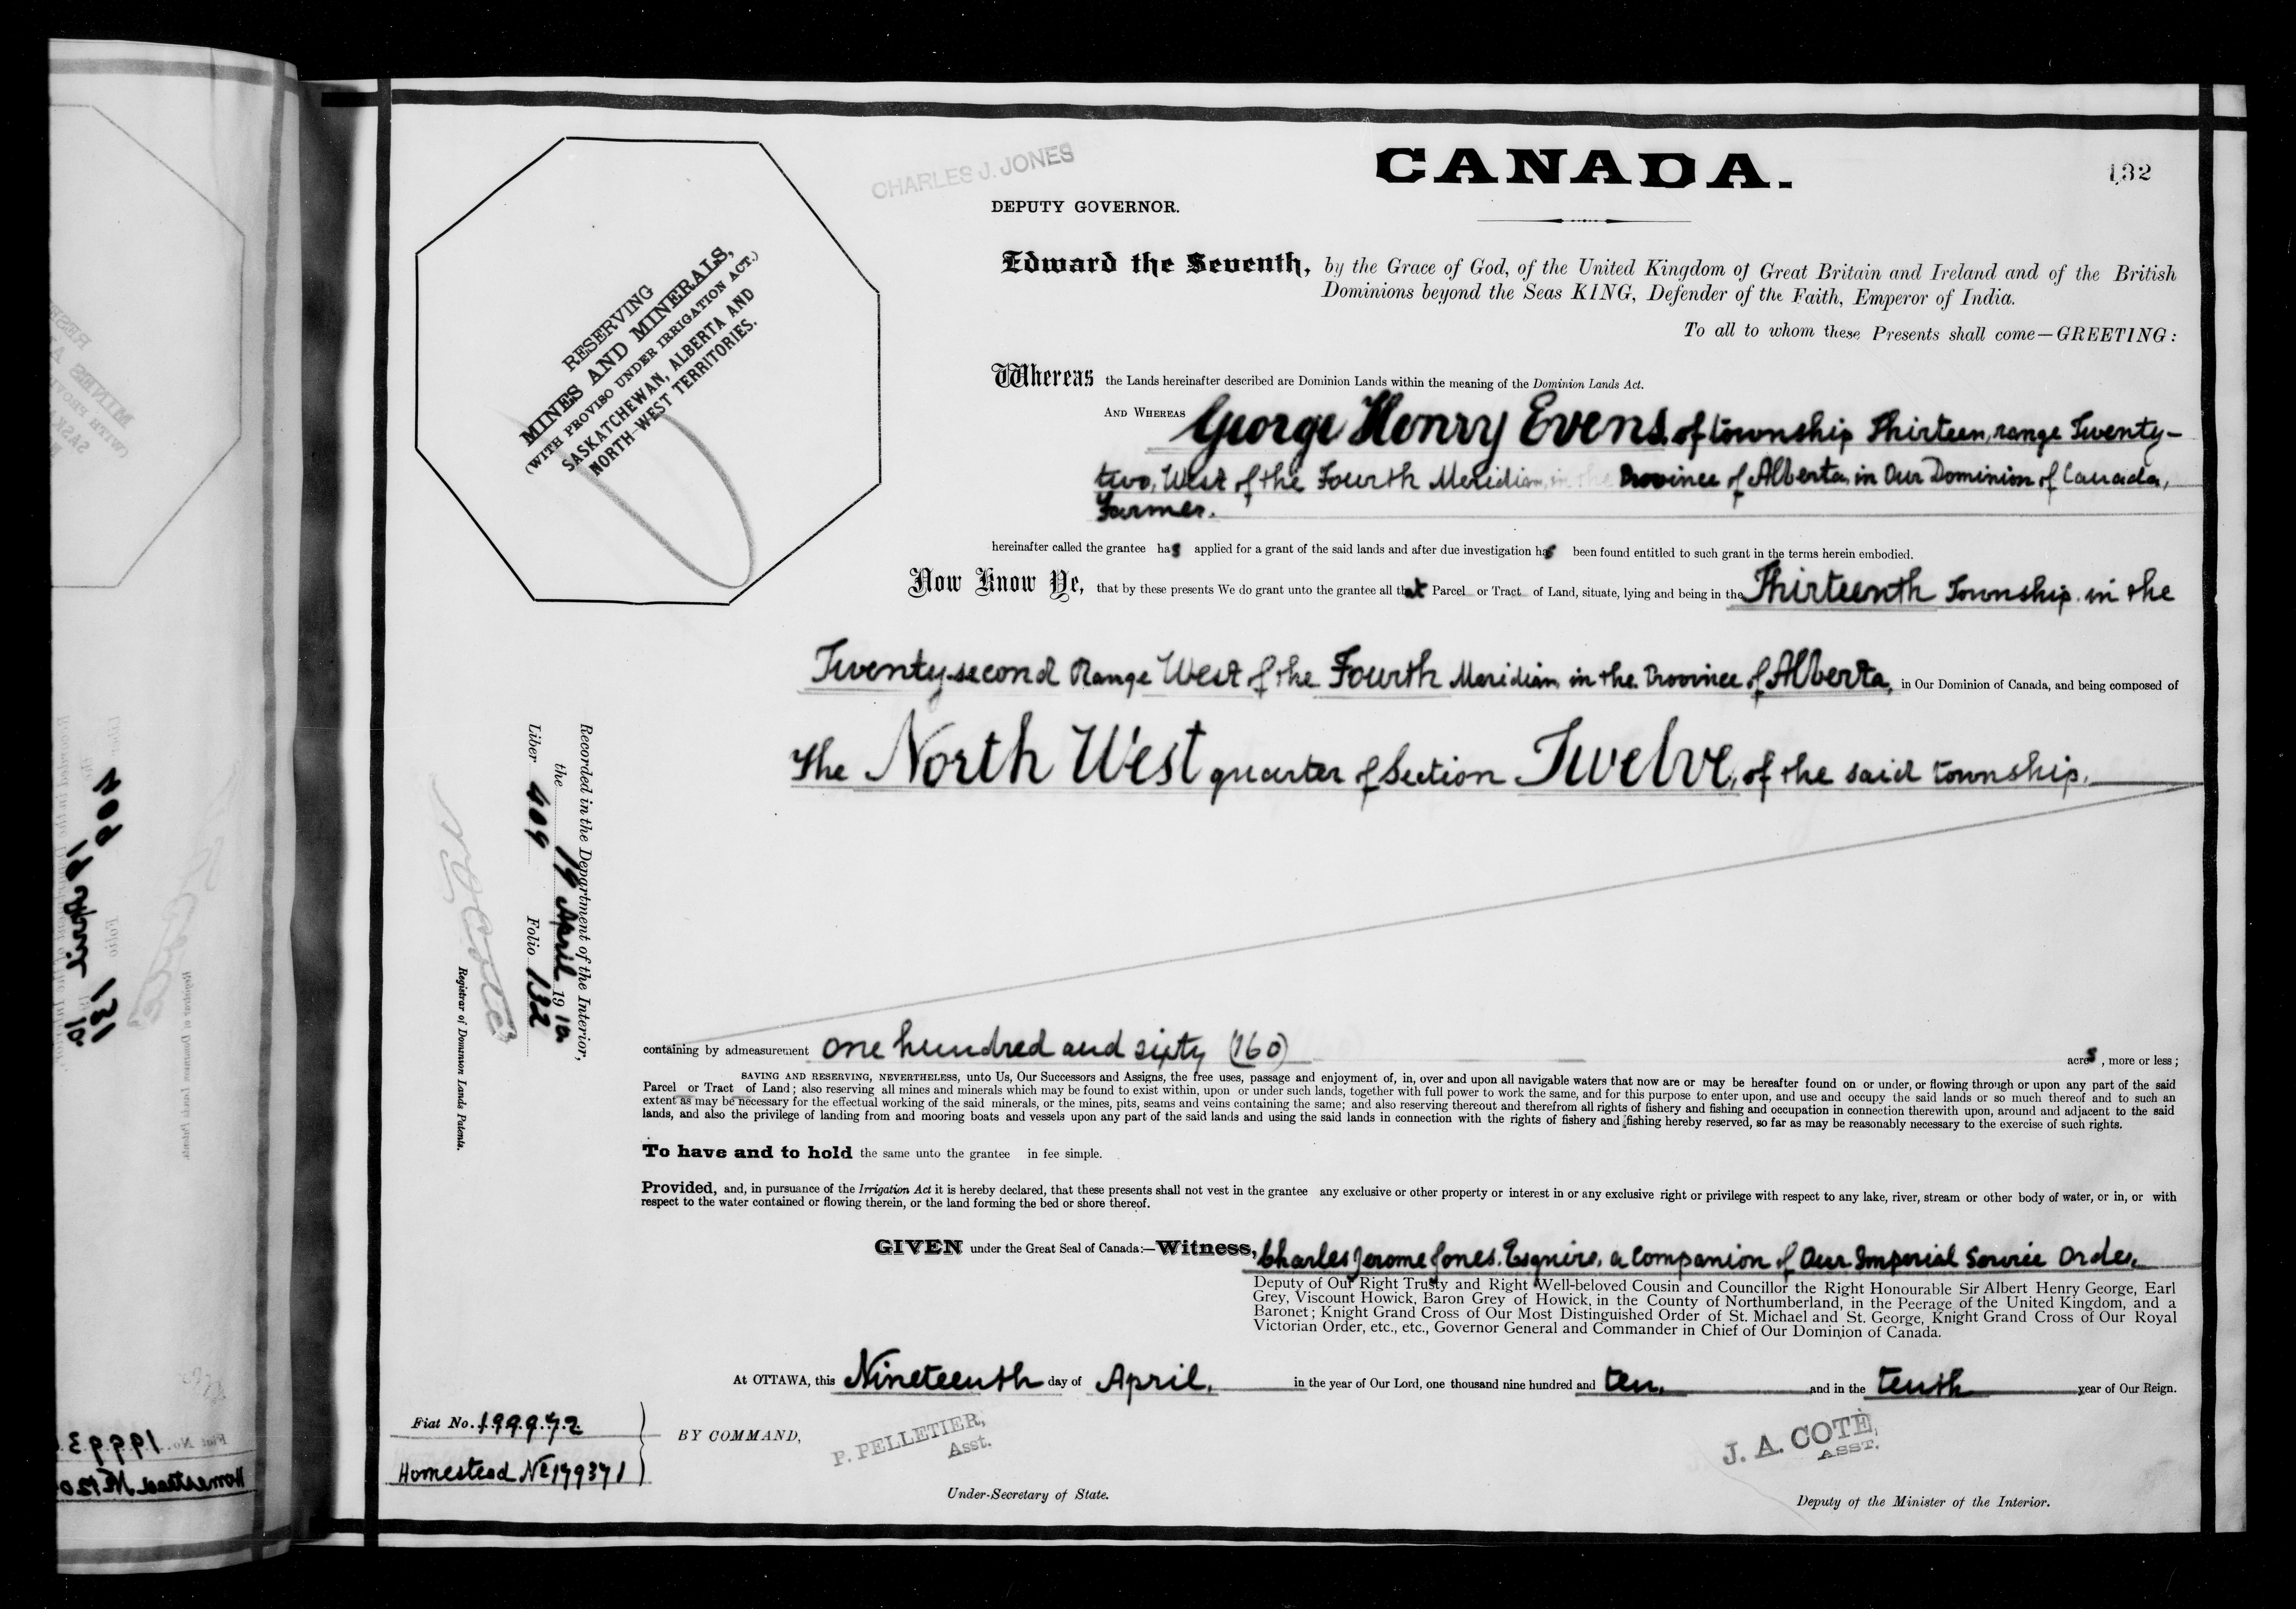 CHARLES J. JONES
CANADA.
132
DEPUTY GOVERNOR.
RESERVING
MINES AND MINERALS,
(WITH PROVISO UNDER IRRIGATION ACT.)
SASKATCHEWAN, ALBERTA AND
NORTH-WEST TERRITORIES.
Edward the Seventh, by the Grace of God, of the United Kingdom of Great Britain and Ireland and of the British
Dominions beyond the Seas KING, Defender of the Faith, Emperor of India.
To all to whom these Presents shall come—GREETING:
Whereas the Lands hereinafter described are Dominion Lands within the meaning of the Dominion Lands Act.
AND WHEREAS George Henry Evens, of township Thirteen, range Twenty-
two, West of the Fourth Meridian, in the Province of Alberta, in Our Dominion of Canada,
Farmer.
hereinafter called the grantee has applied for a grant of the said lands and after due investigation has been found entitled to such grant in the terms herein embodied.
Now Know Ye, that by these presents We do grant unto the grantee all that Parcel or Tract of Land, situate, lying and being in the Thirteenth Township, in the
Twenty-second Range West of the Fourth Meridian, in the Province of Alberta, in Our Dominion of Canada, and being composed of
The North West quarter of Section Twelve, of the said township.
containing by admeasurement one hundred and sixty (160) acres, more or less;
SAVING AND RESERVING, NEVERTHELESS, unto Us, Our Successors and Assigns, the free uses, passage and enjoyment of, in, over and upon all navigable waters that now are or may be hereafter found on or under, or flowing through or upon any part of the said
Parcel or Tract of Land; also reserving all mines and minerals which may be found to exist within, upon or under such lands, together with full power to work the same, and for this purpose to enter upon, and use and occupy the said lands or so much thereof and to such an
extent as may be necessary for the effectual working of the said minerals, or the mines, pits, seams and veins containing the same; and also reserving thereout and therefrom all rights of fishery and fishing and occupation in connection therewith upon, around and adjacent to the said
lands, and also the privilege of landing from and mooring boats and vessels upon any part of the said lands and using the said lands in connection with the rights of fishery and fishing hereby reserved, so far as may be reasonably necessary to the exercise of such rights.
To have and to hold the same unto the grantee in fee simple.
Provided, and, in pursuance of the Irrigation Act it is hereby declared, that these presents shall not vest in the grantee any exclusive or other property or interest in or any exclusive right or privilege with respect to any lake, river, stream or other body of water, or in, or with
respect to the water contained or flowing therein, or the land forming the bed or shore thereof.
GIVEN under the Great Seal of Canada:—Witness, Charles Jerome Jones, Esquire, a Companion of Our Imperial Service Order,
Deputy of Our Right Trusty and Right Well-beloved Cousin and Councillor the Right Honourable Sir Albert Henry George, Earl
Grey, Viscount Howick, Baron Grey of Howick, in the County of Northumberland, in the Peerage of the United Kingdom, and a
Baronet; Knight Grand Cross of Our Most Distinguished Order of St. Michael and St. George, Knight Grand Cross of Our Royal
Victorian Order, etc., etc., Governor General and Commander in Chief of Our Dominion of Canada.
At OTTAWA, this Nineteenth day of April, in the year of Our Lord, one thousand nine hundred and ten, and in the tenth year of Our Reign.
BY COMMAND,
P. PELLETIER,
Asst.
Under-Secretary of State.
J. A. COTÉ,
ASST.
Deputy of the Minister of the Interior.
Fiat No. 199972
Homestead No 179371
Recorded in the Department of the Interior,
the 19 April 1910
Liber 409 Folio 132
N O Coté
Registrar of Dominion Lands Patents.